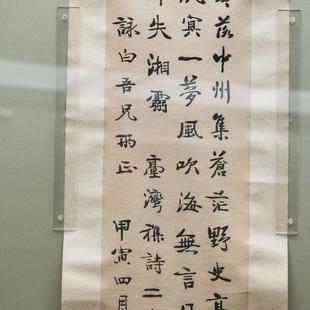 落中州集蒼茫野史
冥一夢風吹海無言
失湘靈 臺灣雜詩二
詠白吾兄兩正 甲寅四月